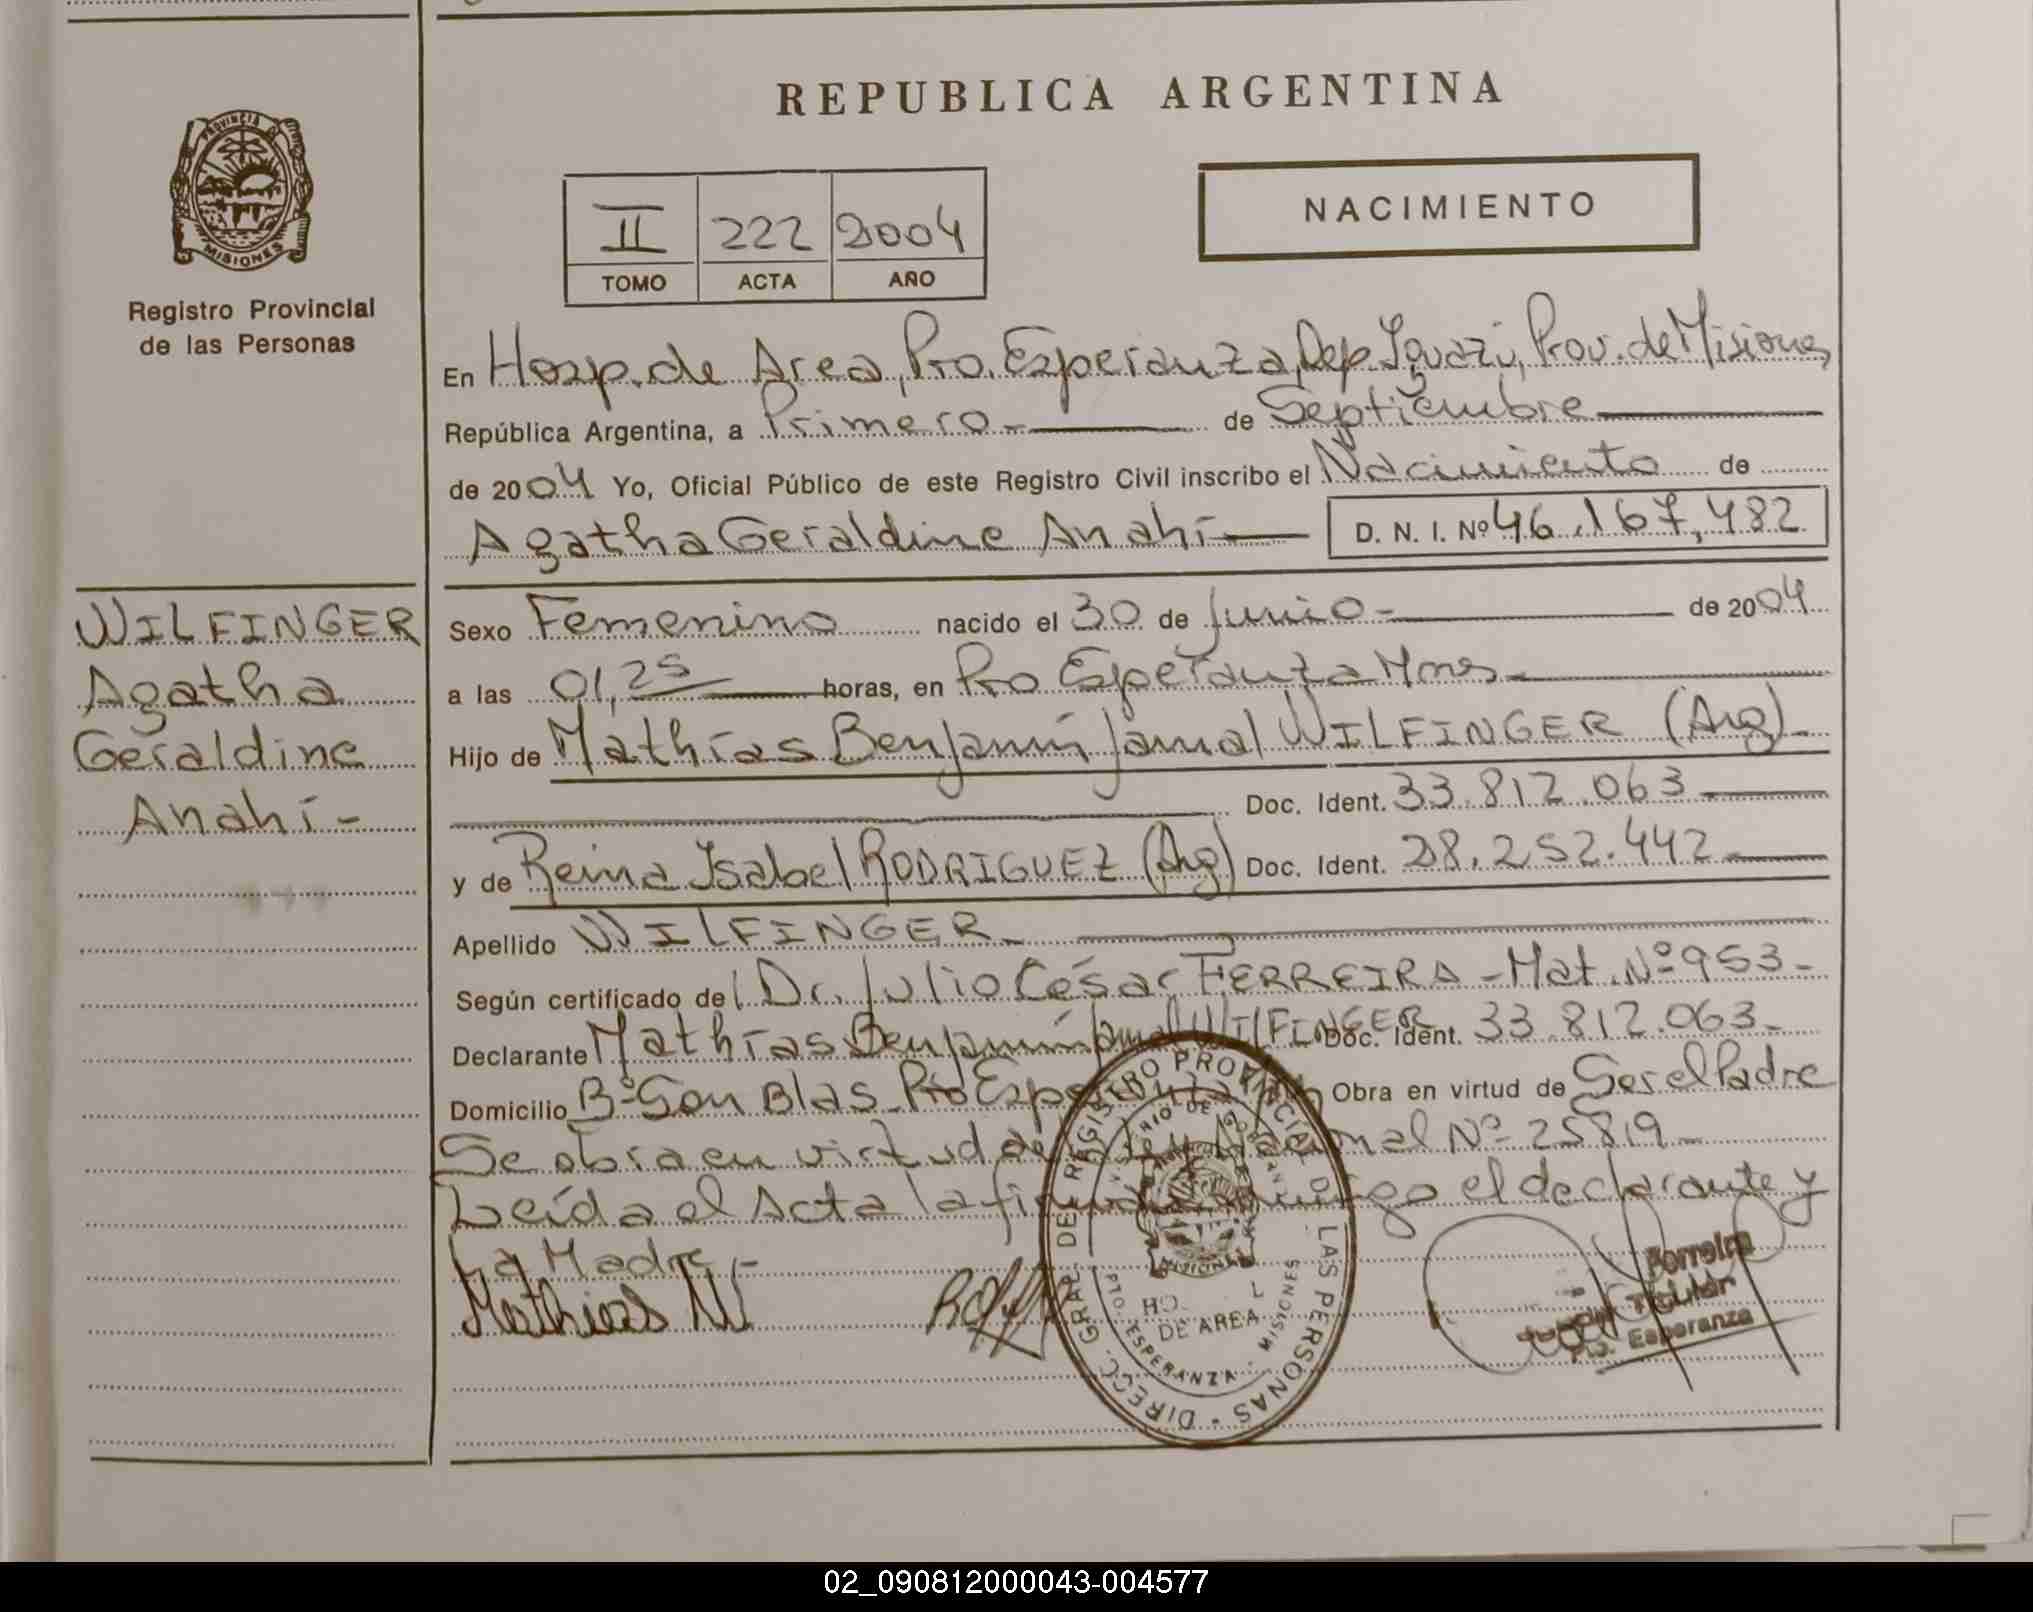 REPUBLICA ARGENTINA
PROVINCIA DE
MISIONES
Registro Provincial
de las Personas
II 222 2004
TOMO ACTA AÑO
NACIMIENTO
En Hosp. de Area, Pto. Esperanza, Dep. Iguazú, Prov. de Misiones,
República Argentina, a Primero.- de Septiembre
de 2004 Yo, Oficial Público de este Registro Civil inscribo el Nacimiento de
Agatha Geraldine Anahí D. N. I. Nº 46.167,482
WILFINGER
Agatha
Geraldine
Anahí -
Sexo Femenino nacido el 30 de Junio - de 2004
a las 01,25 horas, en Pto Esperanza Mnes -
Hijo de Mathías Benjamín Jamal WILFINGER (Arg) -
Doc. Ident. 33.812.063
y de Reina Isabel RODRIGUEZ (Arg) Doc. Ident. 28.252.442 -
Apellido WILFINGER -
Según certificado del Dr. Julio César FERREIRA - Mat. Nº 953 -
Declarante Mathías Benjamín Jamal WILFINGER Doc. Ident. 33.812.063 -
Domicilio Bº San Blas - Pto Esperanza Obra en virtud de Ser el Padre
Se obra en virtud de Nacional Nº 25819 -
Leída el Acta la conmigo el declarante y
La Madre -
Mathias W
DIRECC. GRAL. DEL REGISTRO PROVINCIAL DE LAS PERSONAS
DE AREA
PTO. ESPERANZA - MISIONES
Ferreira
Titular
Pto. Esperanza
02_090812000043-004577